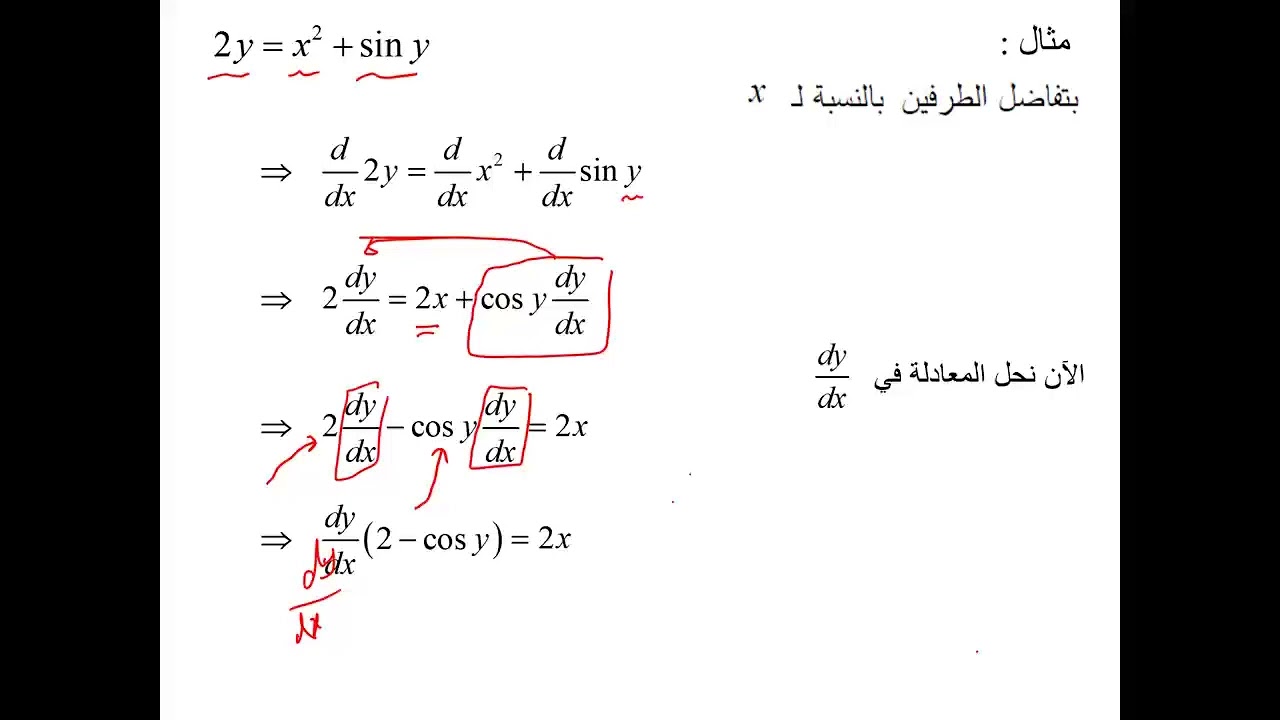 مثال :
2y = x² + sin y
بتفاضل الطرفين بالنسبة لـ x
⇒ d/dx 2y = d/dx x² + d/dx sin y
⇒ 2 dy/dx = 2x + cos y dy/dx
الآن نحل المعادلة في dy/dx
⇒ 2 dy/dx − cos y dy/dx = 2x
⇒ dy/dx (2 − cos y) = 2x
dy/dx